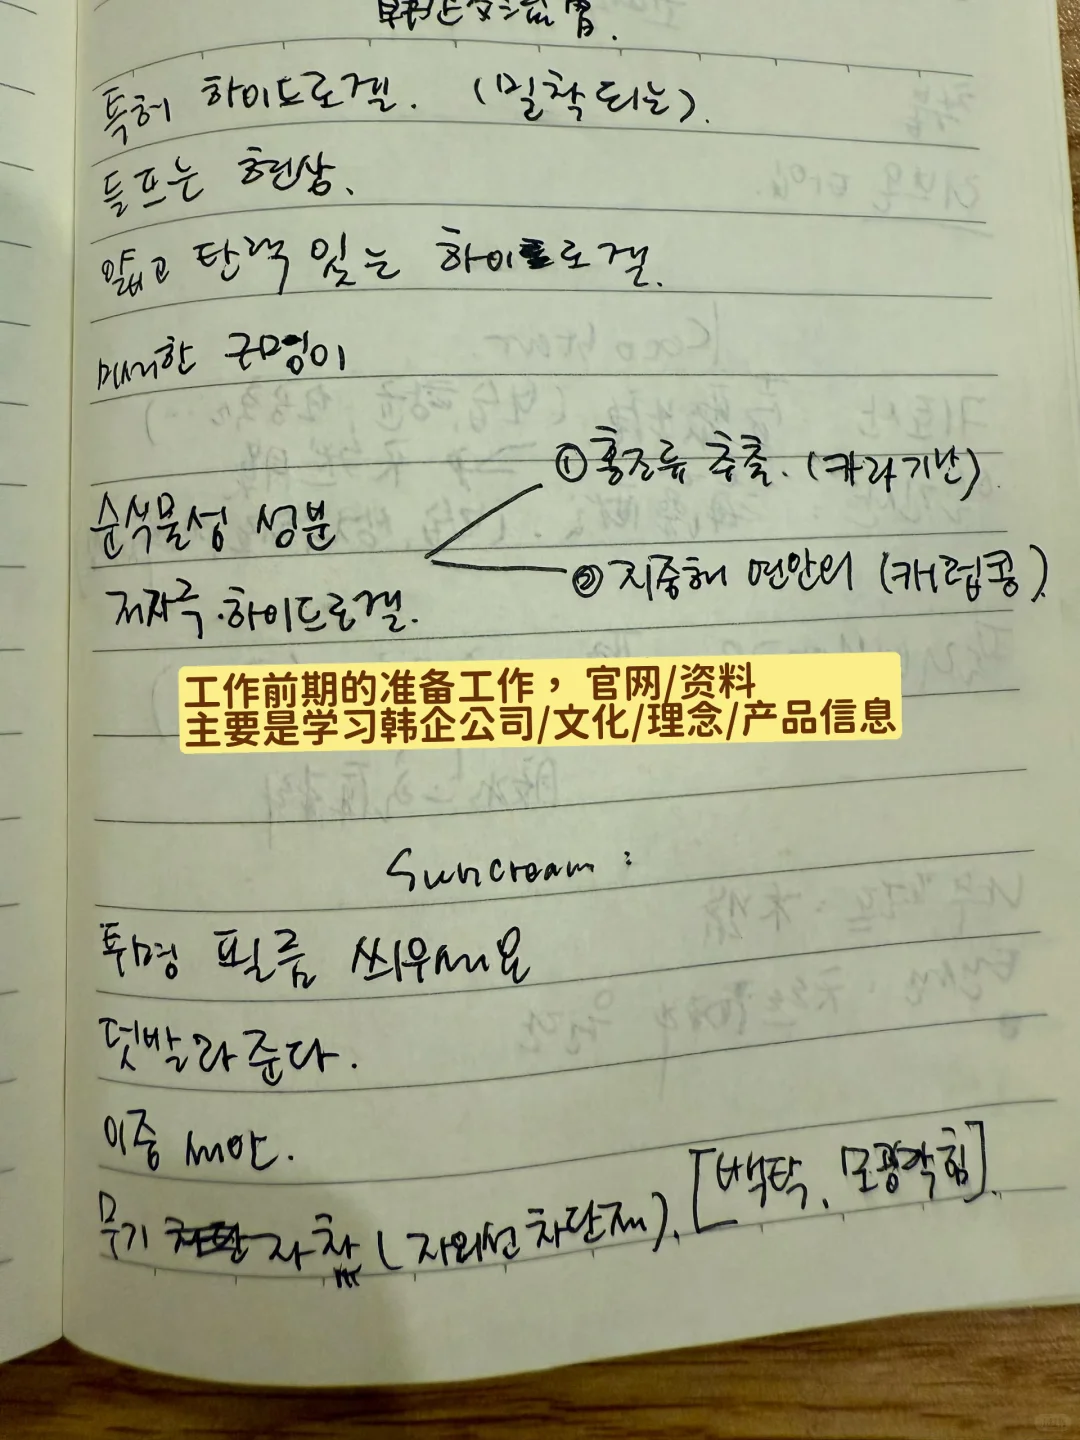 특허 하이드로겔. (밀착되는).
들뜨는 현상.
얇고 탄력 있는 하이드로겔.
미세한 구멍이
순식물성 성분
①홍조류 추출. (카라기난)
②지중해 연안의 (캐럽콩)
저자극·하이드로겔.
工作前期的准备工作， 官网/资料
主要是学习韩企公司/文化/理念/产品信息
Suncream:
투명 필름 씌우세요
덧발라준다.
이중 세안.
무기 자차 (자외선차단제). [백탁, 모공막힘].